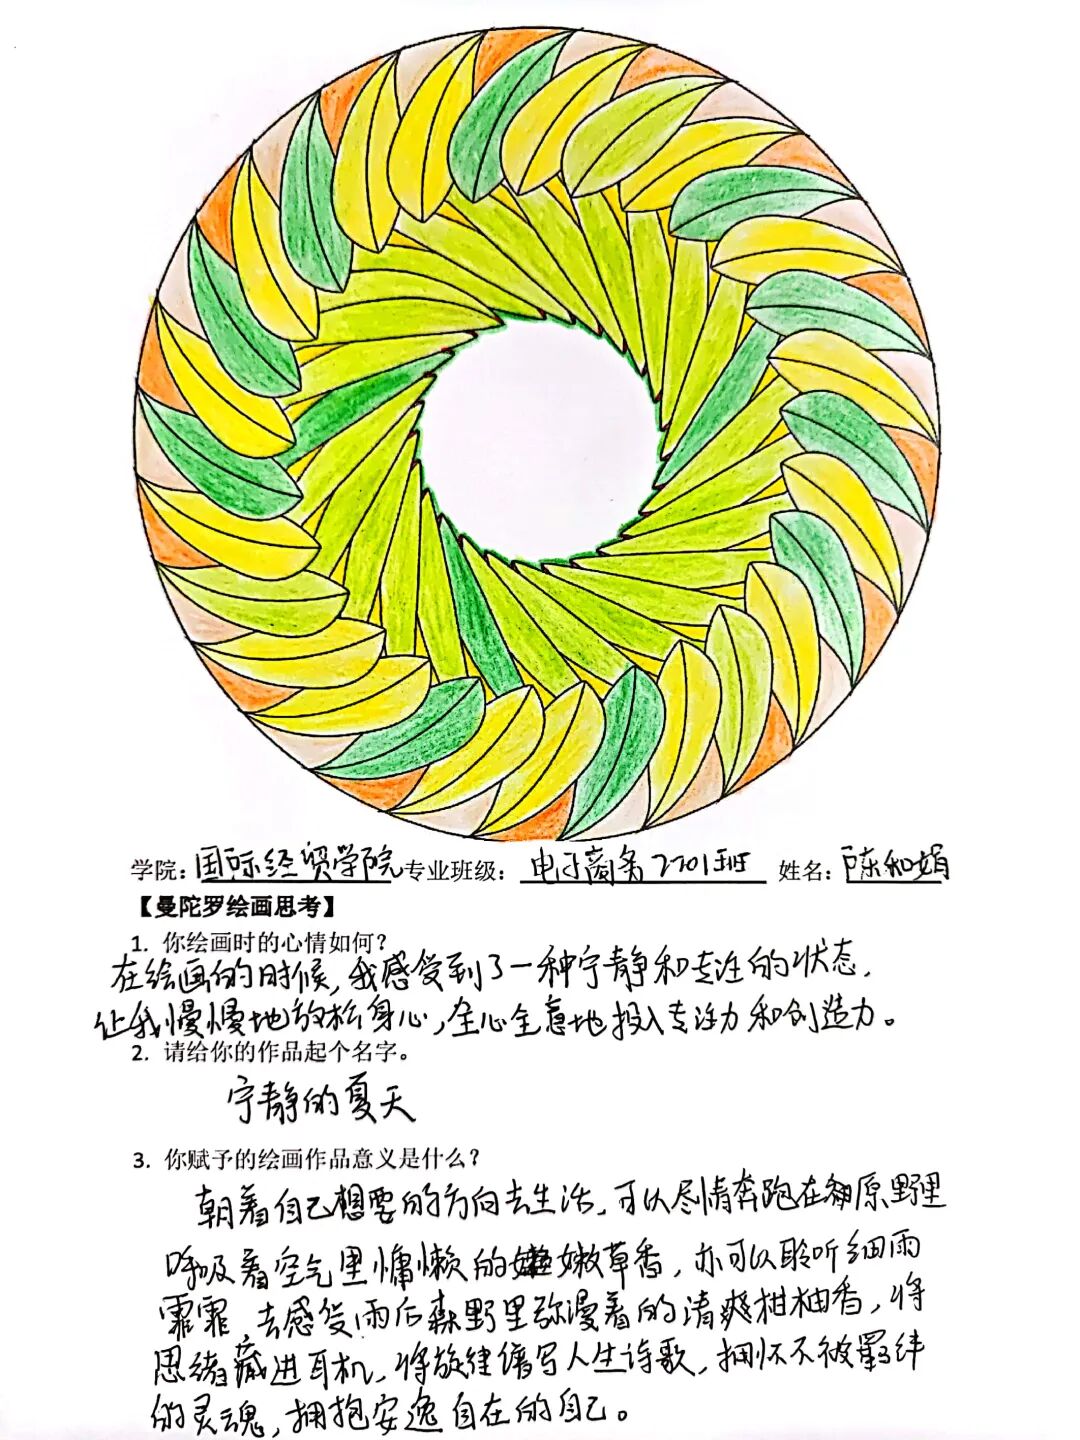 学院：国际经贸学院 专业班级：电子商务2701班 姓名：陈和娟
【曼陀罗绘画思考】
1. 你绘画时的心情如何？
在绘画的时候，我感受到了一种宁静和专注的状态，
让我慢慢地放松身心，全心全意地投入专注力和创造力。
2. 请给你的作品起个名字。
宁静的夏天
3. 你赋予的绘画作品意义是什么？
朝着自己想要的方向去生活，可以尽情奔跑在原野里
呼吸着空气里慵懒的嫩草香，亦可以聆听细雨
霏霏，去感受雨后森野里弥漫着的清爽柑柚香，将
思绪藏进耳机，将旋律谱写人生诗歌，拥怀不被羁绊
的灵魂，拥抱安逸自在的自己。